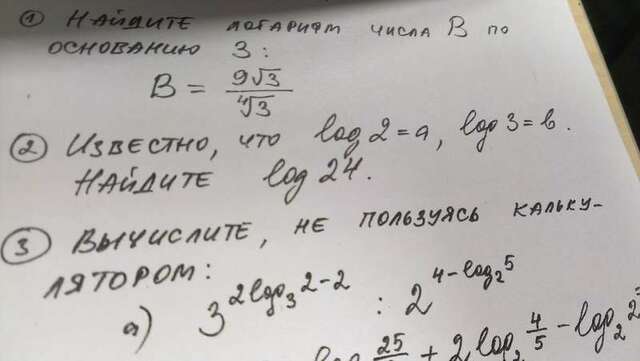 ① НАЙДИТЕ ЛОГАРИФМ ЧИСЛА B ПО
ОСНОВАНИЮ 3:
B = 9√3 / ∜3
② ИЗВЕСТНО, ЧТО log 2 = a, log 3 = b.
НАЙДИТЕ log 24.
③ ВЫЧИСЛИТЕ, НЕ ПОЛЬЗУЯСЬ КАЛЬКУ-
ЛЯТОРОМ:
а) 3^(2log₃2-2) : 2^(4-log₂5)
25 + 2 log₂ 4/5 - log₂ 2